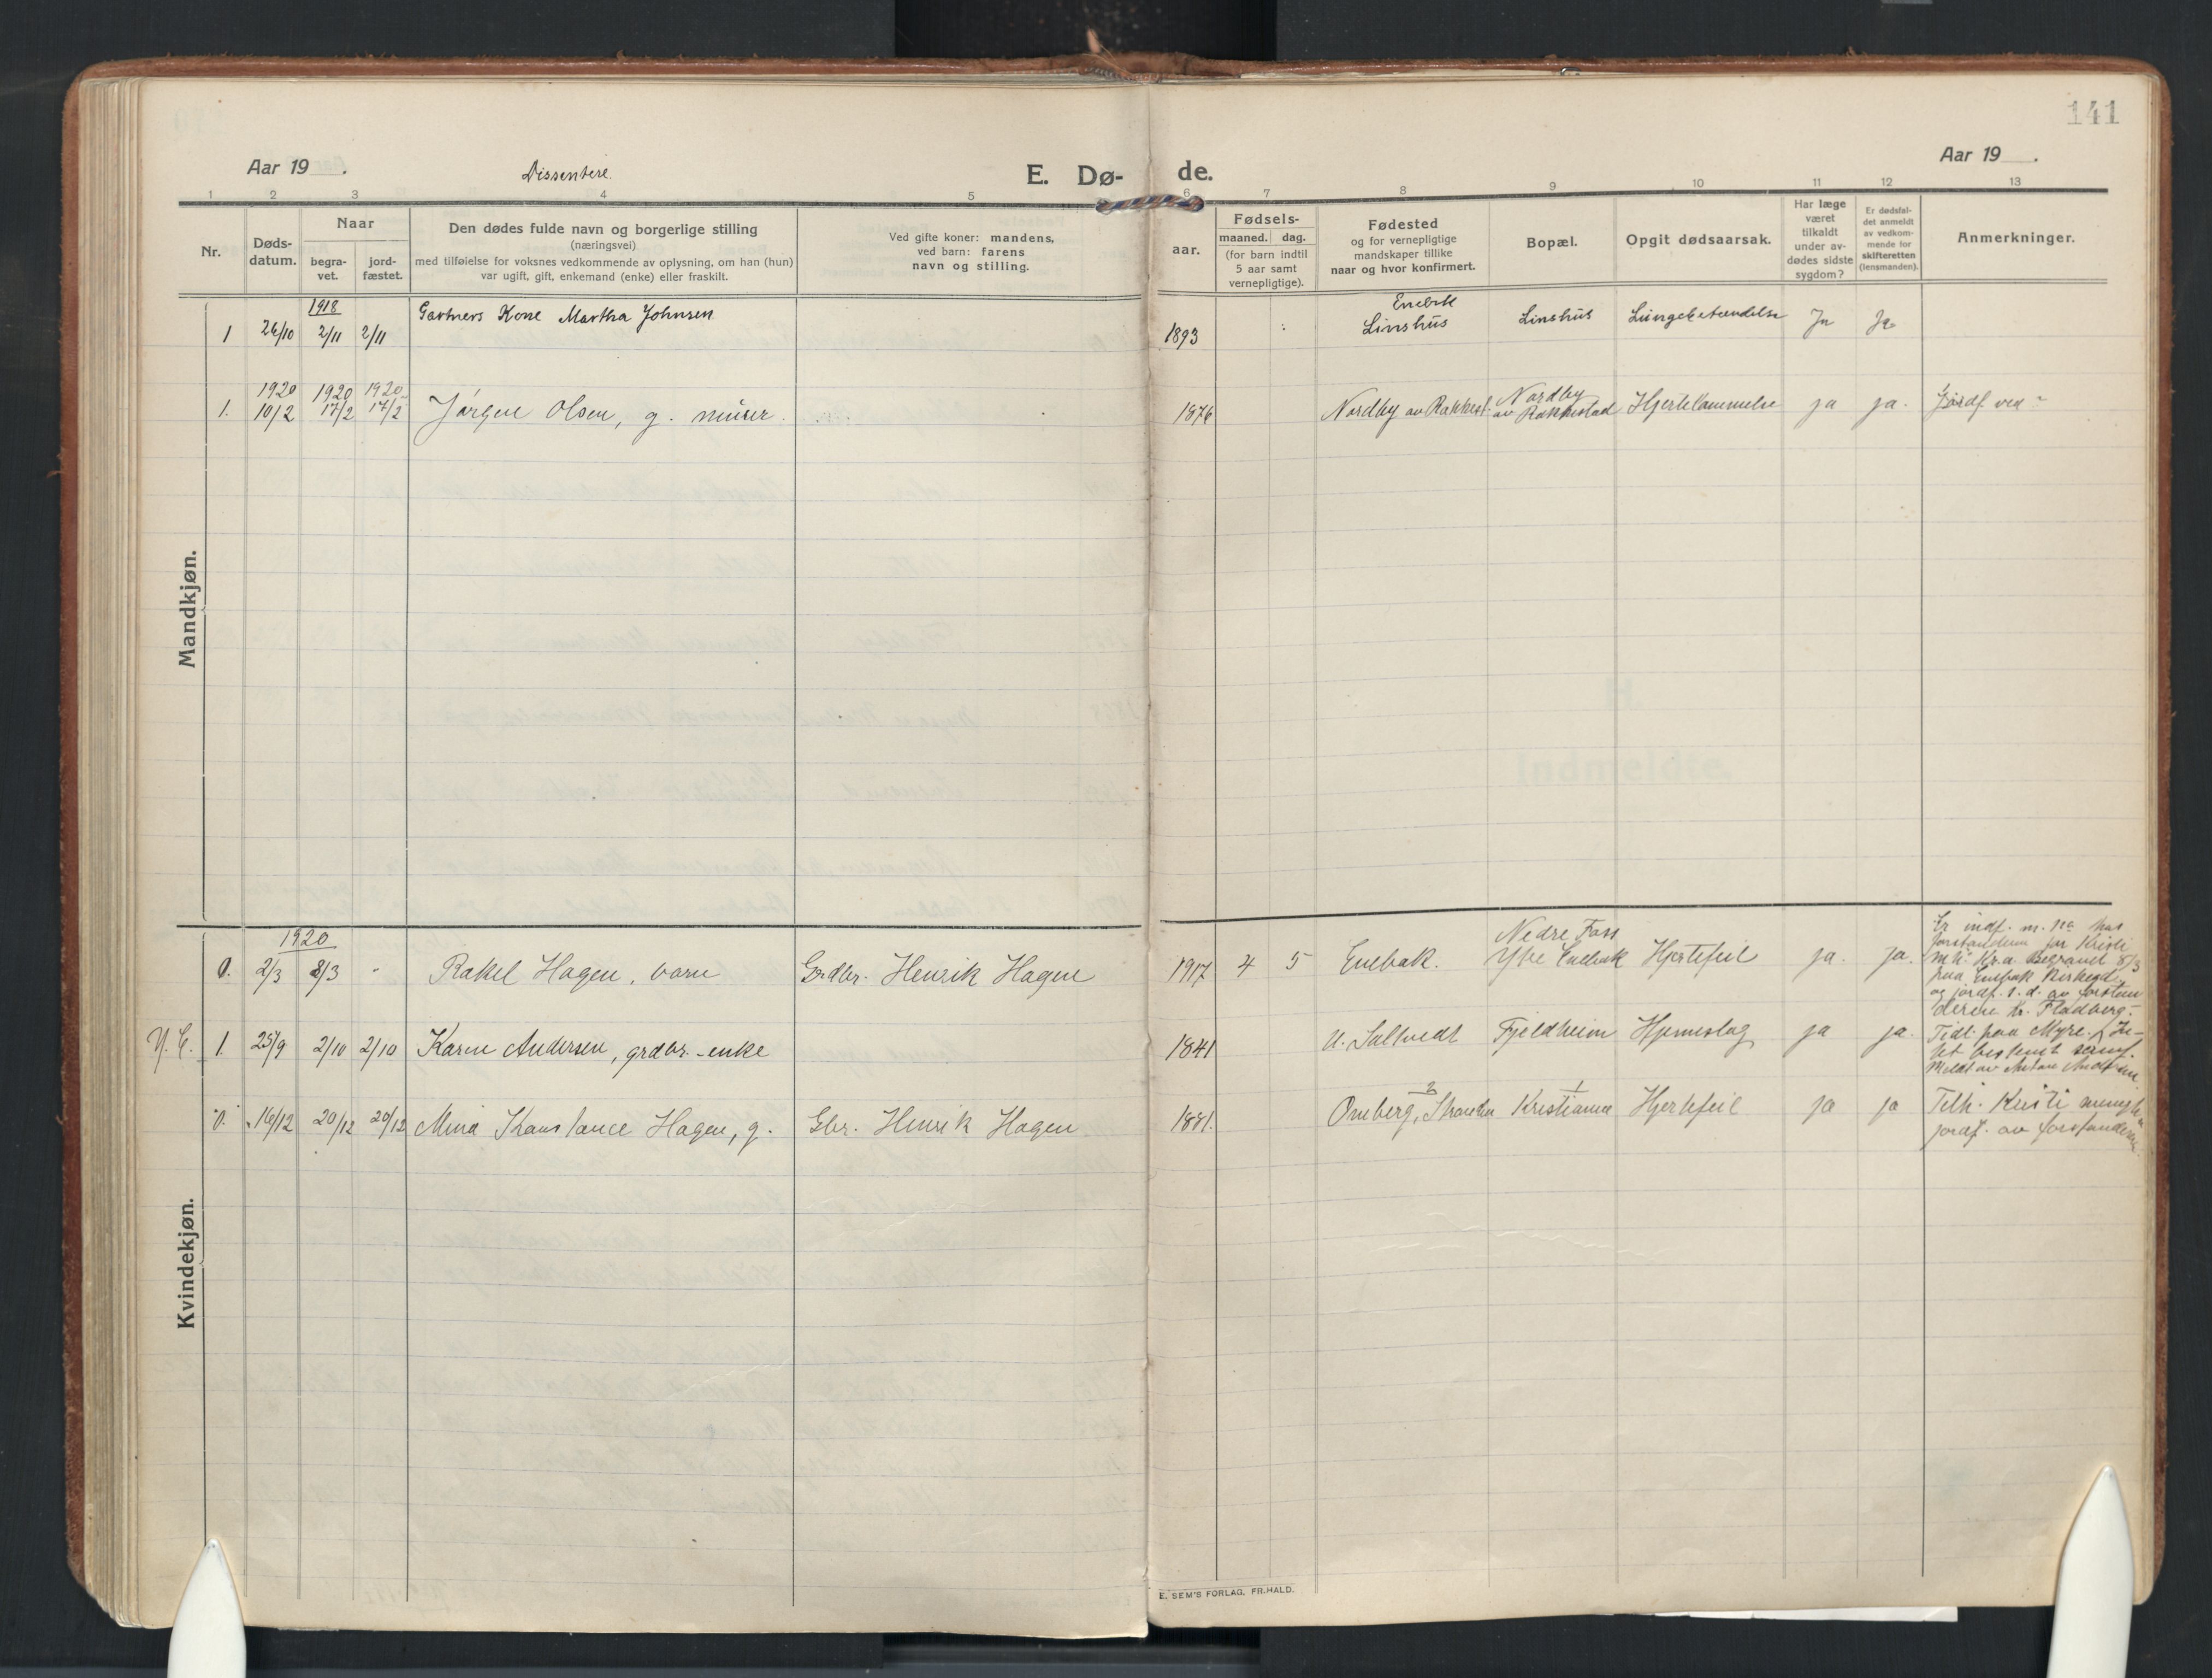 141
Aar 19 .
Dissentere.
E. Dø-
de.
Aar 19 .
1 2 3 4 5 6 7 8 9 10 11 12 13
Nr.
Døds-
datum.
Naar
begra-
vet.
jord-
fæstet.
Den dødes fulde navn og borgerlige stilling
(næringsvei)
med tilføielse for voksnes vedkommende av oplysning, om han (hun)
var ugift, gift, enkemand (enke) eller fraskilt.
Ved gifte koner: mandens,
ved barn: farens
navn og stilling.
aar.
Fødsels-
maaned. dag.
(for barn indtil
5 aar samt
vernepligtige).
Fødested
og for vernepligtige
mandskaper tillike
naar og hvor konfirmert.
Bopæl.
Opgit dødsaarsak.
Har læge
været
tilkaldt
under av-
dødes sidste
sygdom?
Er dødsfal-
det anmeldt
av vedkom-
mende for
skifteretten
(lensmanden).
Anmerkninger.
Mandkjøn.
1918
Gartners Kone Martha Johnsen
1 26/10 2/11 2/11
1893
Enebk
Linshus Linshus Lungebetændelse Ja Ja
1920 1920 1920
1. 10/2 17/2 17/2 Jørgen Olsen, g. murer.
1876 Nordby av Rakkest. Nordby
av Rakkestad Hjertelammelse ja ja. Jordf. ved -
Kvindekjøn.
1920
0. 2/3 8/3 " Rakel Hagen, barn Grdbr. Henrik Hagen
1917 4 5 Enebak. Nedre Foss
Ytre Enebak Hjertefeil ja. ja.
Er indf. m. no hos
forstanderen for Kristi
mh. Kr.a. Begravet 8/3
paa Enebak Kirkegd.
og jordf. s.d. av forstan
deren Kr. Fladberg.
Y. E. 1. 25/9 2/10 2/10 Karen Andersen, grdbr.-enke
1841 U. Saltvedt Fjeldheim Hjerneslag ja ja. Tidl. paa Myre.
Meldt av Anton Andersen
0. 16/12 20/12 20/12 Mina Konstance Hagen, g. Gbr. Henrik Hagen
1881. Omberg, Kristiania Hjertefeil ja ja Tilh. Kristi menigh.
jordf. av forstanderen
E. SEM'S FORLAG, FR.HALD.